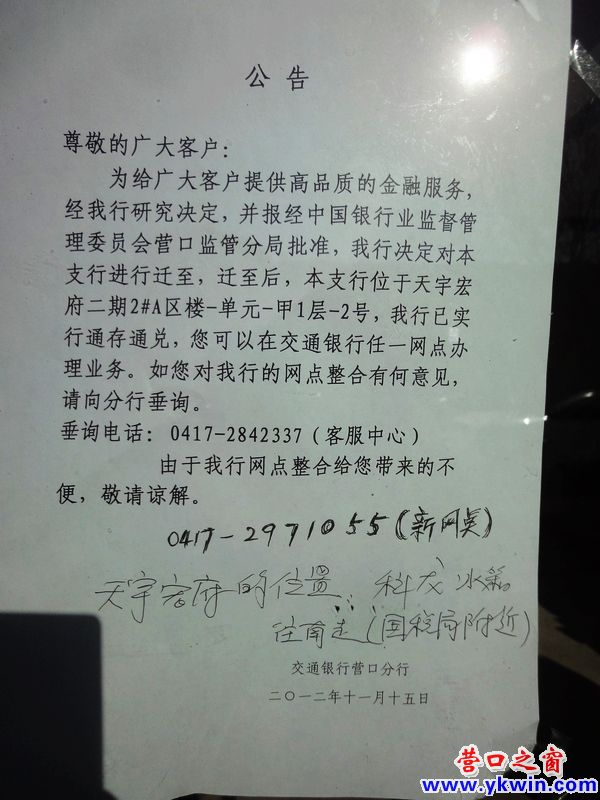 公 告
尊敬的广大客户：
为给广大客户提供高品质的金融服务，
经我行研究决定，并报经中国银行业监督管
理委员会营口监管分局批准，我行决定对本
支行进行迁至，迁至后，本支行位于天宇宏
府二期2#A区楼-单元-甲1层-2号，我行已实
行通存通兑，您可以在交通银行任一网点办
理业务。如您对我行的网点整合有何意见，
请向分行垂询。
垂询电话：0417-2842337（客服中心）
由于我行网点整合给您带来的不
便，敬请谅解。
0417-2971055（新网点）
天宇宏府的位置：科龙冰箱
往南走（国税局附近）
交通银行营口分行
二〇一二年十一月十五日
营口之窗
www.ykwin.com